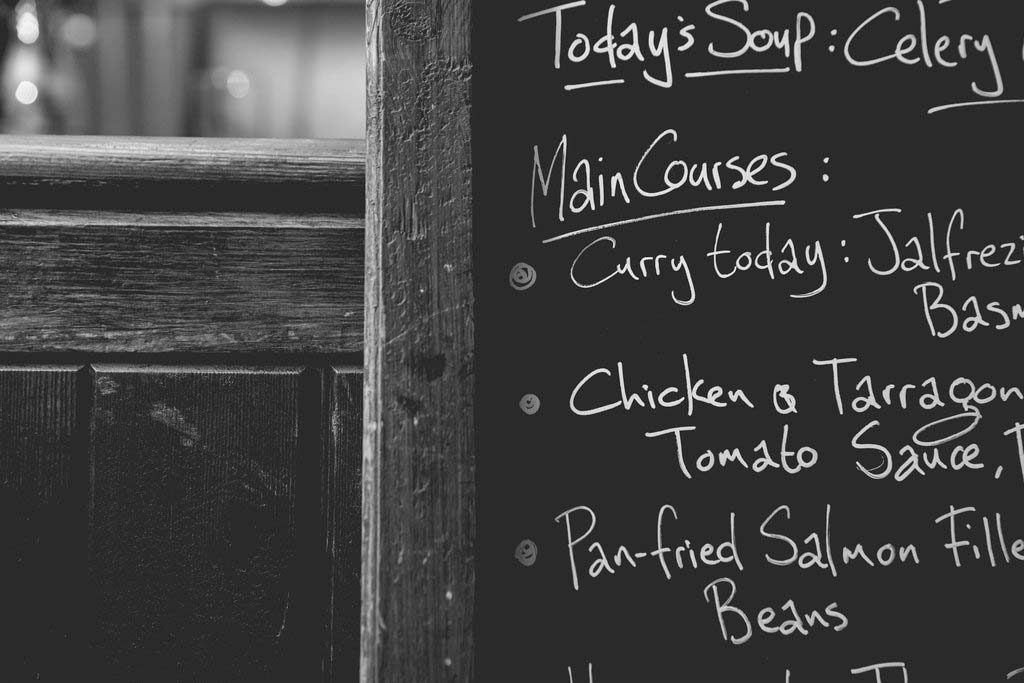 Today's Soup: Celery
Main Courses:
Curry today: Jalfrezi
Basm
Chicken & Tarragon
Tomato Sauce,
Pan-fried Salmon Fille
Beans